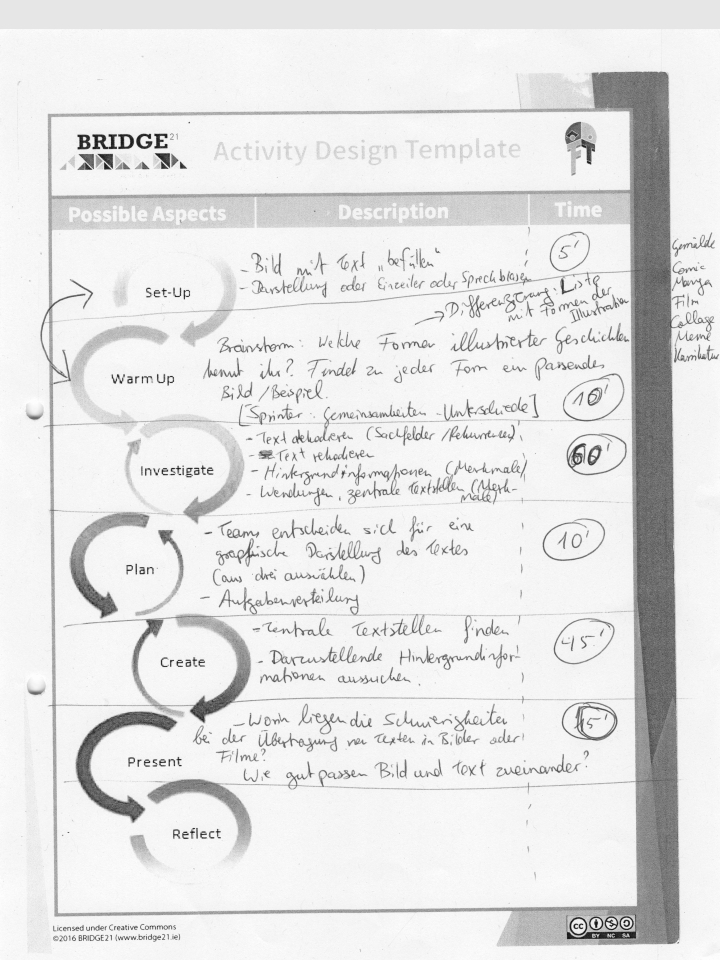 BRIDGE21
Activity Design Template
FT
Possible Aspects
Description
Time
Set-Up
- Bild mit Text „befüllen"
- Darstellung oder Einzeiler oder Sprechblasen
5'
→ Differenzierung: Liste
mit Formen der
Illustration
Gemälde
Comic
Manga
Film
Collage
Meme
Karikatur
Warm Up
Brainstorm: Welche Formen illustrierter Geschichten
kennt ihr? Findet zu jeder Form ein passendes
Bild/Beispiel.
[Sprinter: Gemeinsamkeiten - Unterschiede]
10'
Investigate
- Text dekodieren (Sachfelder/Rekurrenzen)
- Text rekodieren
- Hintergrundinformationen (Merkmale)
- Wendungen, zentrale Textstellen (Merk-
male)
60'
Plan
- Teams entscheiden sich für eine
graphische Darstellung des Textes
(aus drei auswählen)
- Aufgabenverteilung
10'
Create
- Zentrale Textstellen finden
- Darzustellende Hintergrundinfor-
mationen aussuchen.
45'
Present
- Worin liegen die Schwierigkeiten
bei der Übertragung von Texten in Bilder oder
Filme?
Wie gut passen Bild und Text zueinander?
15'
Reflect
Licensed under Creative Commons
©2016 BRIDGE21 (www.bridge21.ie)
CC BY NC SA